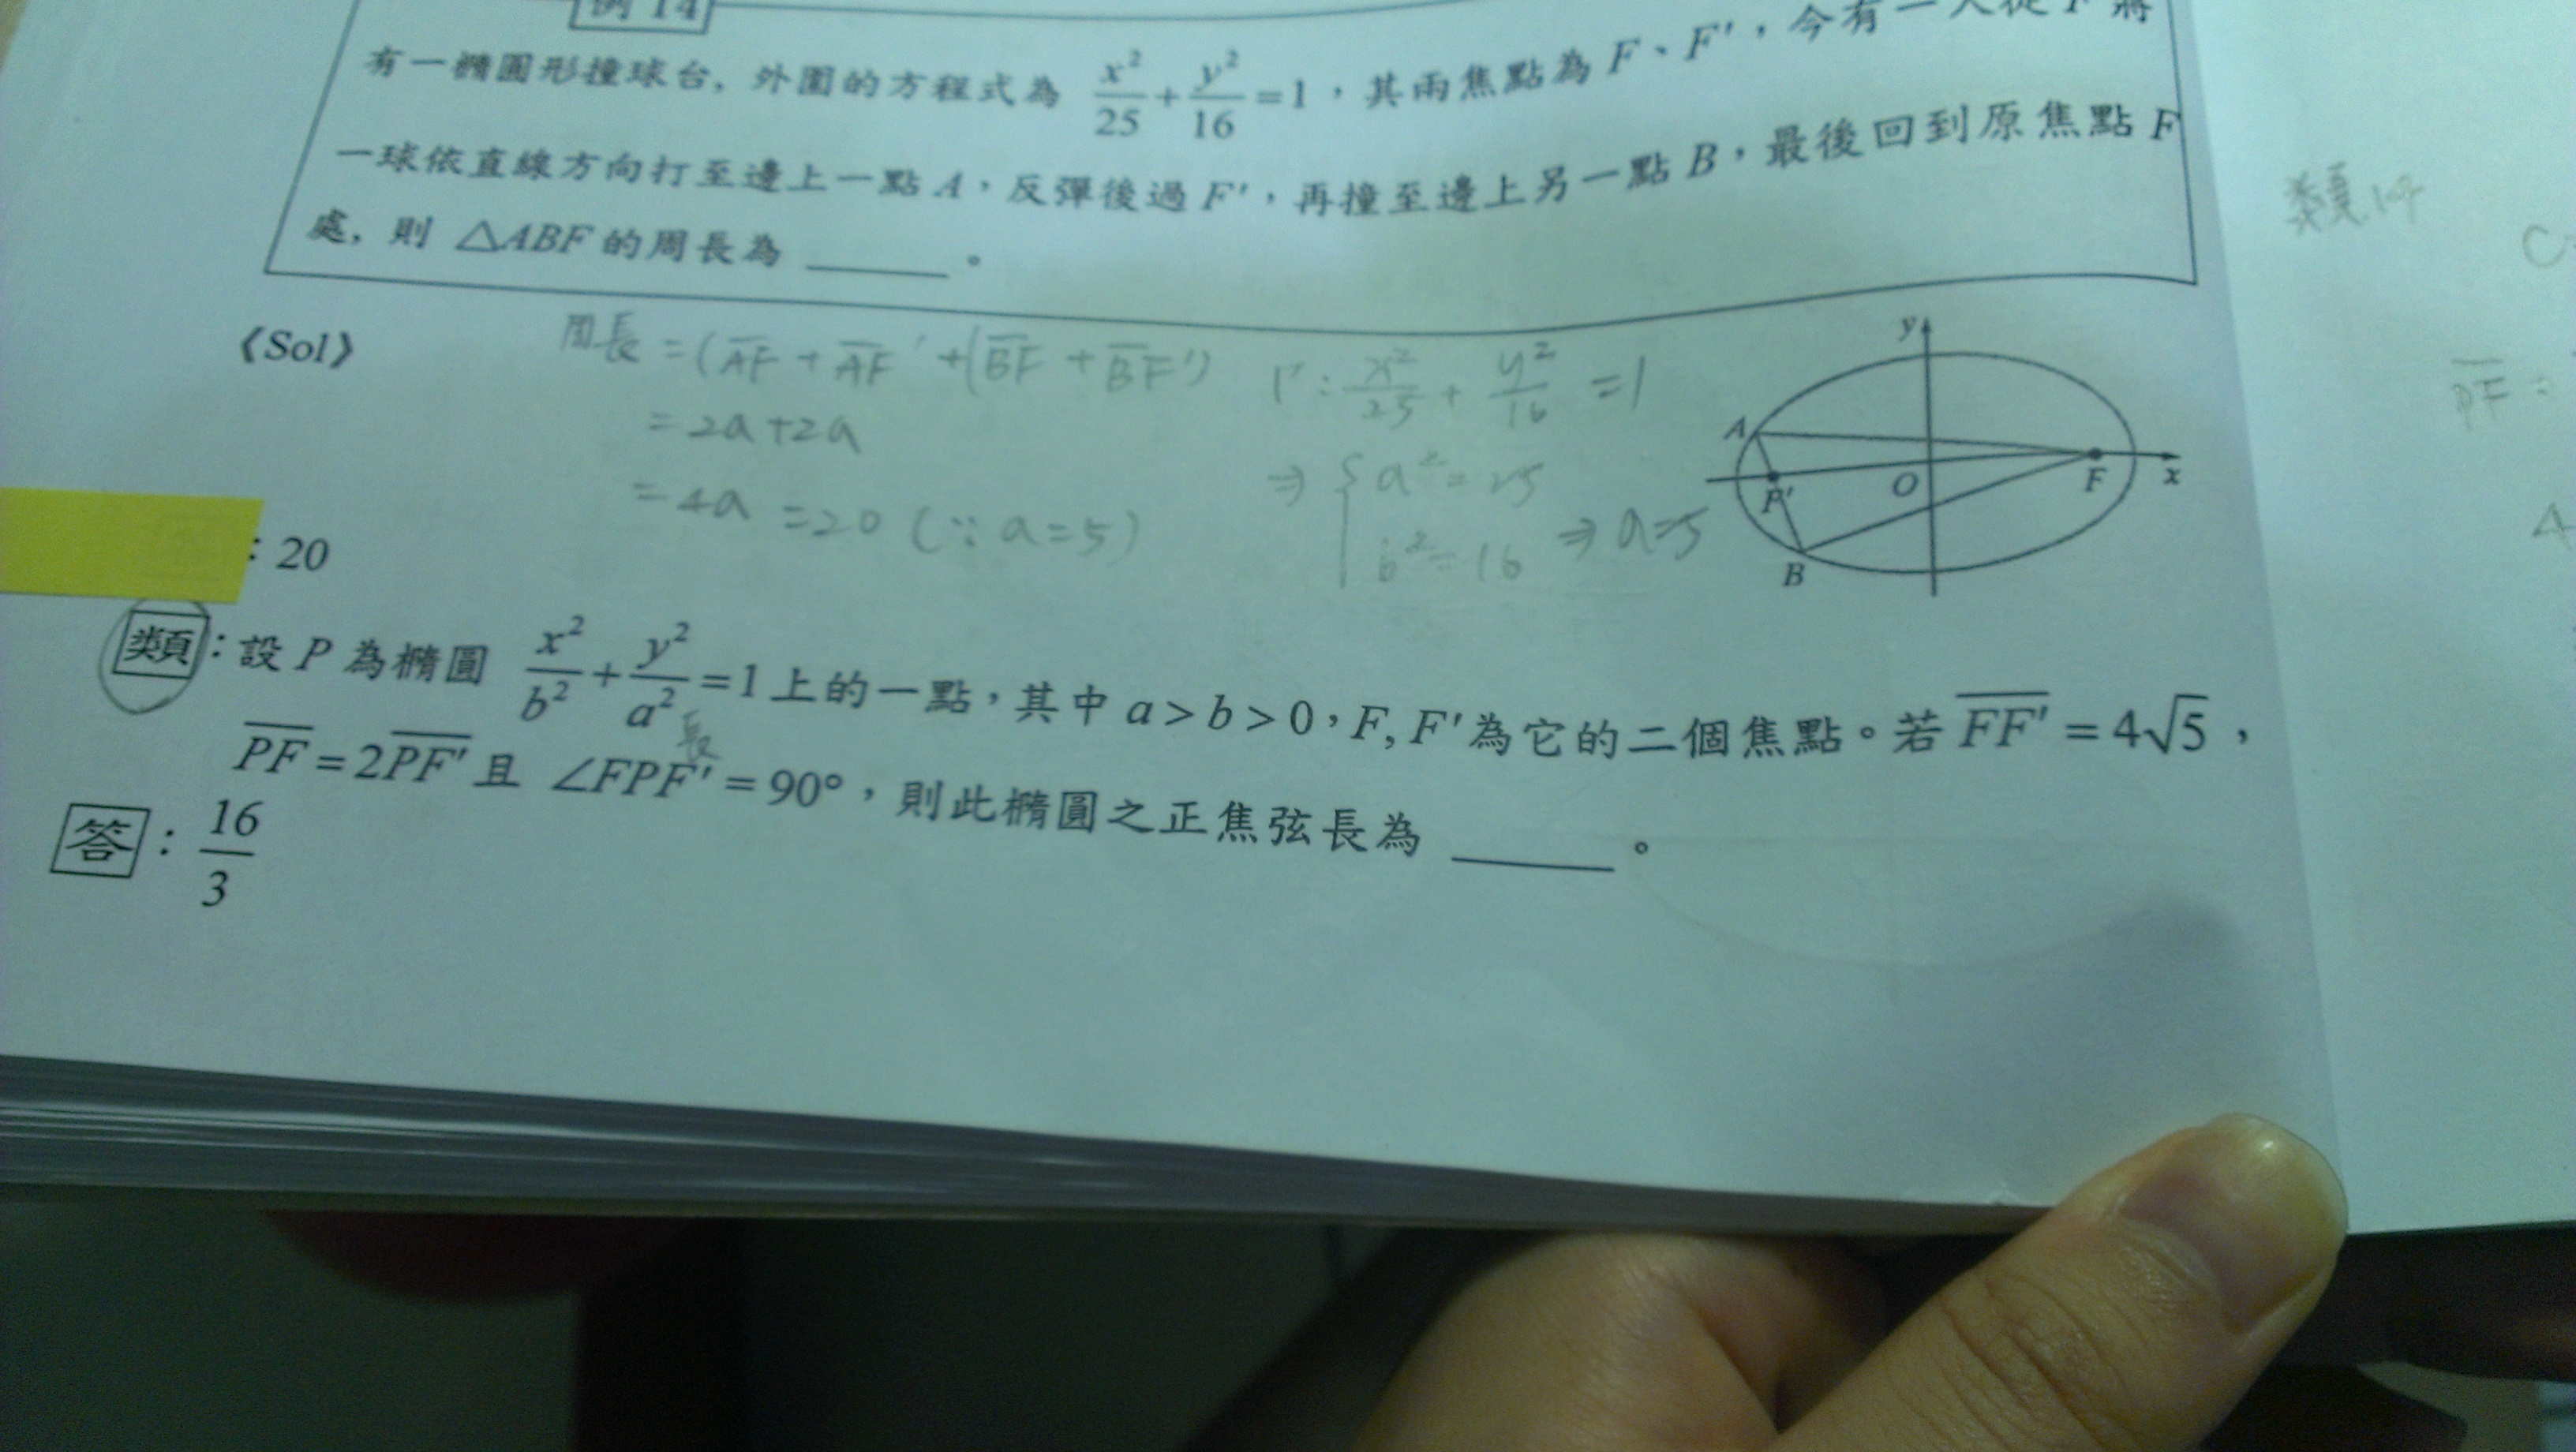 例 14
有一橢圓形撞球台, 外圍的方程式為 x²/25 + y²/16 = 1，其兩焦點為 F、F'，今有一人從 F 將
一球依直線方向打至邊上一點 A，反彈後過 F'，再撞至邊上另一點 B，最後回到原焦點 F
處, 則 △ABF 的周長為 ______。
《Sol》
周長 = (AF + AF' + (BF + BF')
= 2a + 2a
= 4a = 20 (∵ a = 5)
Γ : x²/25 + y²/16 = 1
⇒ { a² = 25
b² = 16 ⇒ a = 5
y
A
F'
O
F
x
B
: 20
類 : 設 P 為橢圓 x²/b² + y²/a² = 1 上的一點，其中 a > b > 0，F, F' 為它的二個焦點。若 FF' = 4√5，
長
PF = 2PF' 且 ∠FPF' = 90°，則此橢圓之正焦弦長為 ______。
答 : 16/3
類
PF =